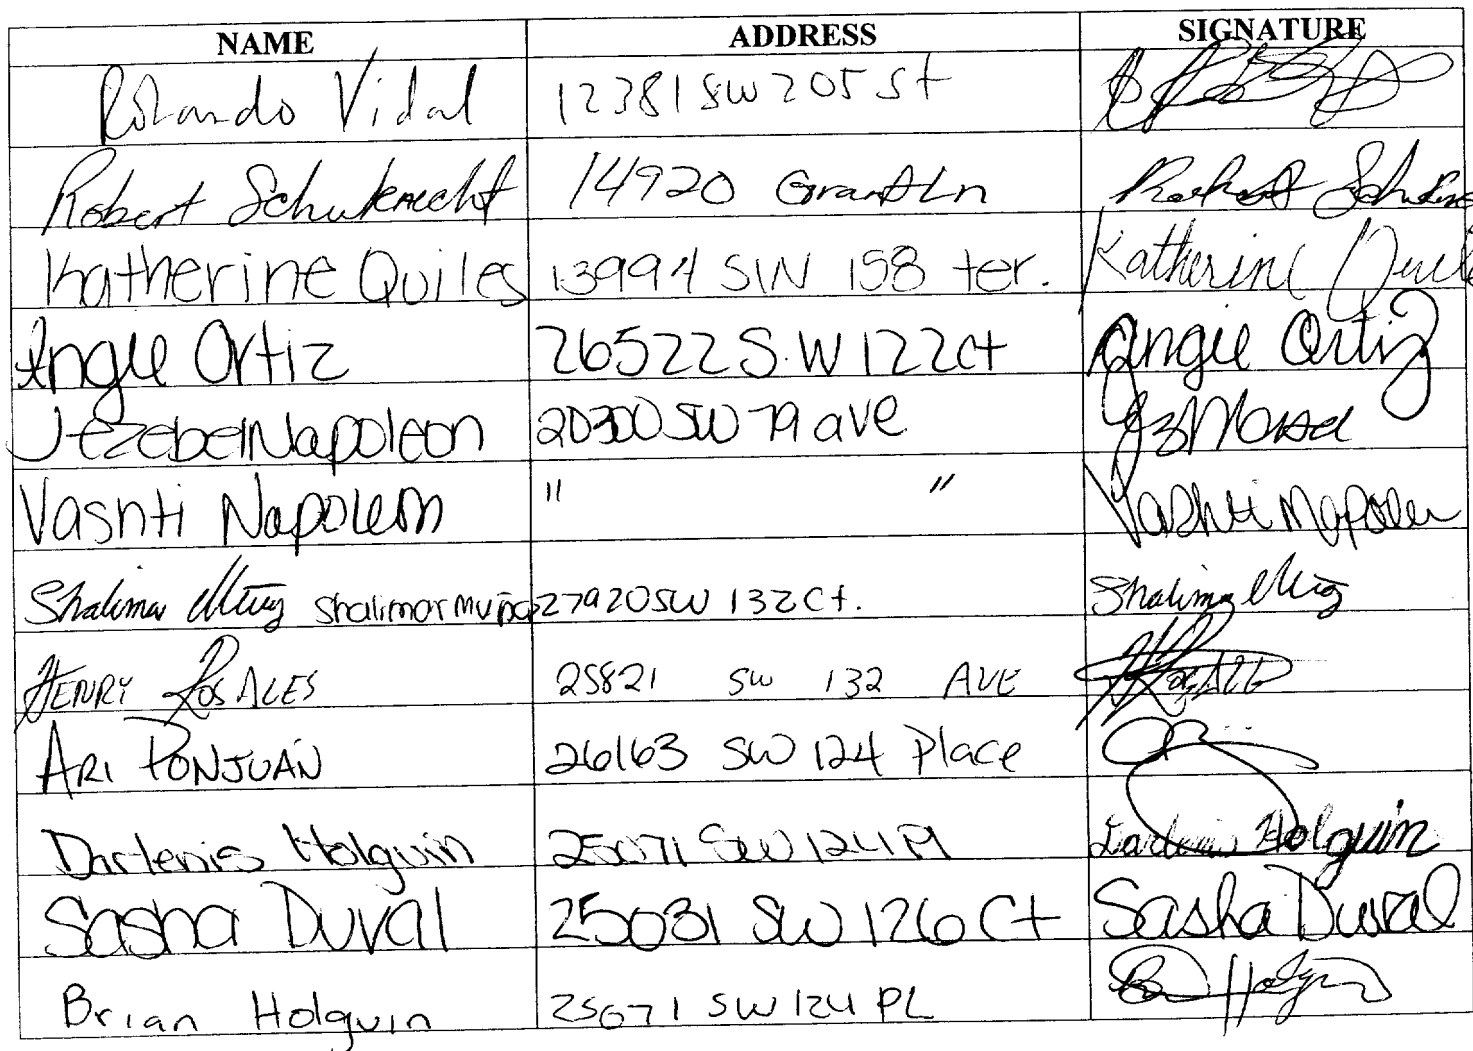 NAME ADDRESS SIGNATURE
Rolando Vidal 12381 SW 205 St
Robert Schuknecht 14920 Grant Ln Robert
Katherine Quiles 13994 SW 158 ter. Katherine Quiles
Angie Ortiz 26522 S.W 122 ct Angie Ortiz
Jezebel Napoleon 20300 SW 79 ave
Vashti Napoleon " " Vashti Napoleon
Shalimar Muñoz Shalimar Muñoz 27920 SW 132 Ct. Shalimar
HENRY ROSALES 25821 SW 132 AVE
ARI PONJUAN 26163 SW 124 Place
Darlenis Holguin 25071 SW 124 Pl Darlenis Holguin
Sasha Duval 25031 SW 126 Ct Sasha Duval
Brian Holguin 25071 SW 124 PL